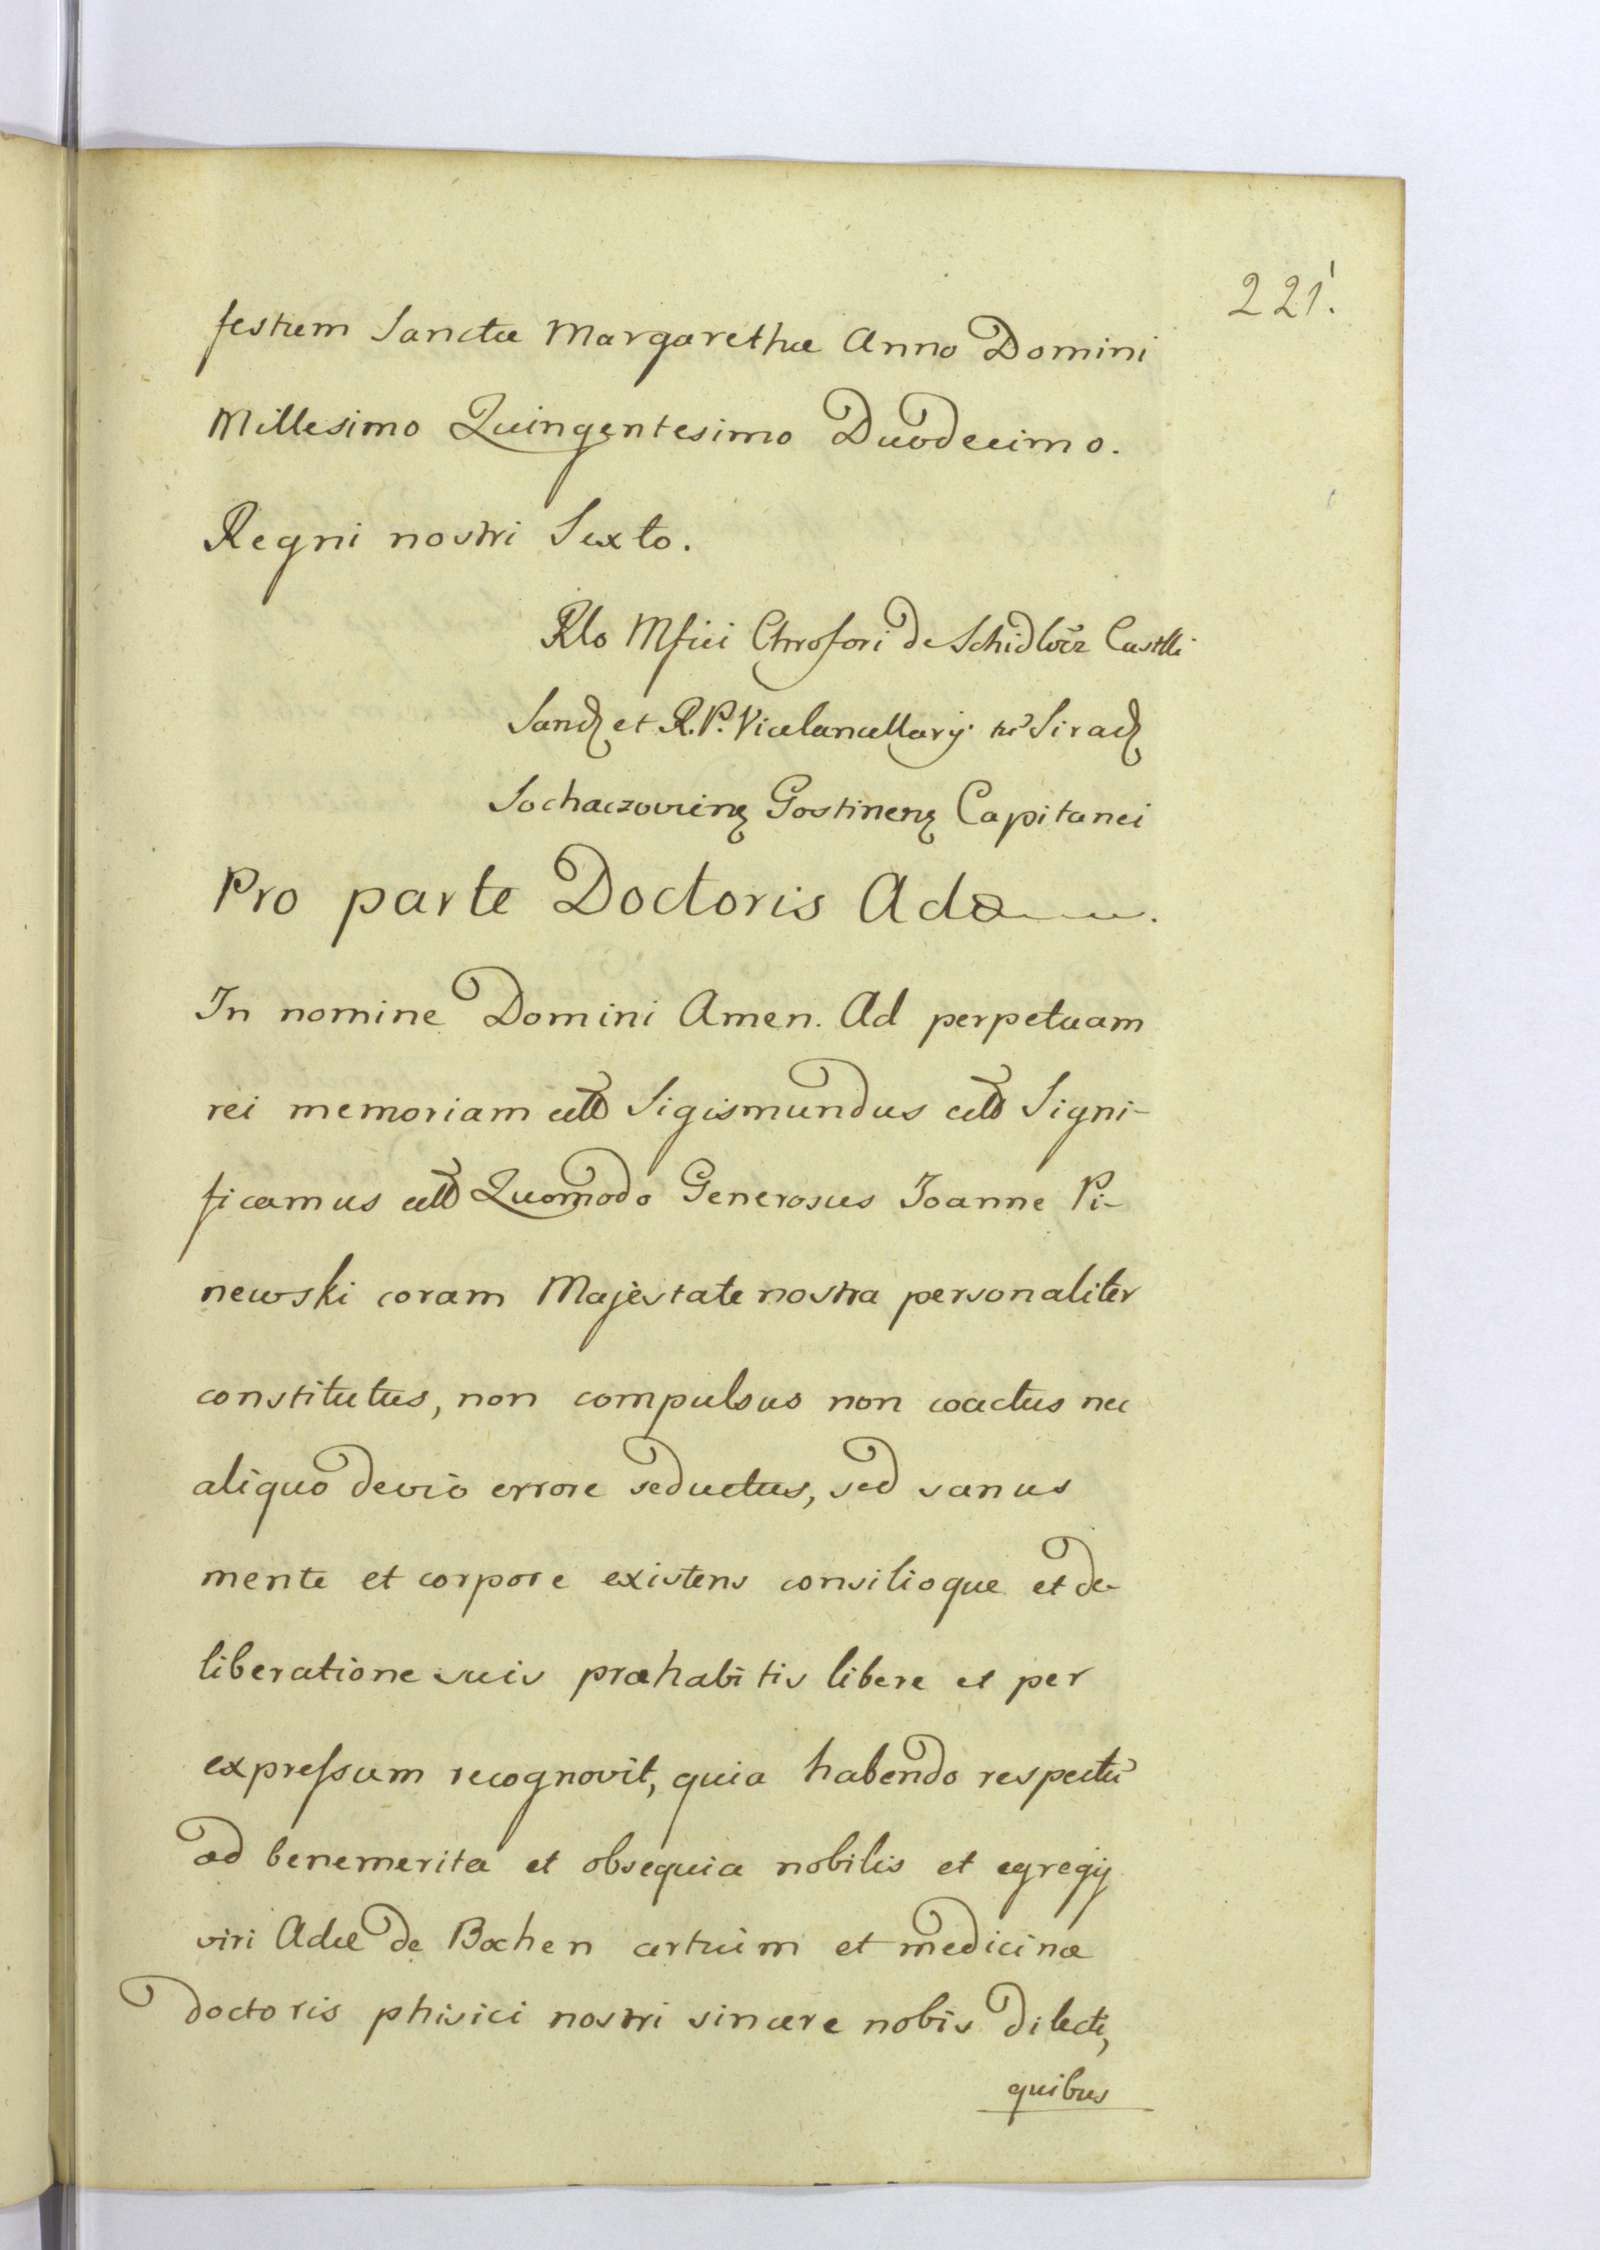 221.
festum Sanctæ Margarethæ Anno Domini
Millesimo Quingentesimo Duodecimo.
Regni nostri Sexto.
Rlo Mfici Chrofori de Schidlocz Castlli
Sand et R. P. Vicecancellarÿ Sirad
Sochaczovien Gostinen Capitanei
Pro parte Doctoris Adæ
In nomine Domini Amen. Ad perpetuam
rei memoriam Sigismundus Signi-
ficamus Quomodo Generosus Joanne Pi-
newski coram Majestate nostra personaliter
constitutus, non compulsus non coactus nec
aliquo devio errore seductus, sed sanus
mente et corpore existens consilioque et de-
liberatione suis præhabitis libere et per
expressum recognovit, quia habendo respectū
ad benemerita et obsequia nobilis et egregÿ
viri Adæ de Bochen artium et medicinæ
doctoris phisici nostri sincere nobis dilecti,
quibus